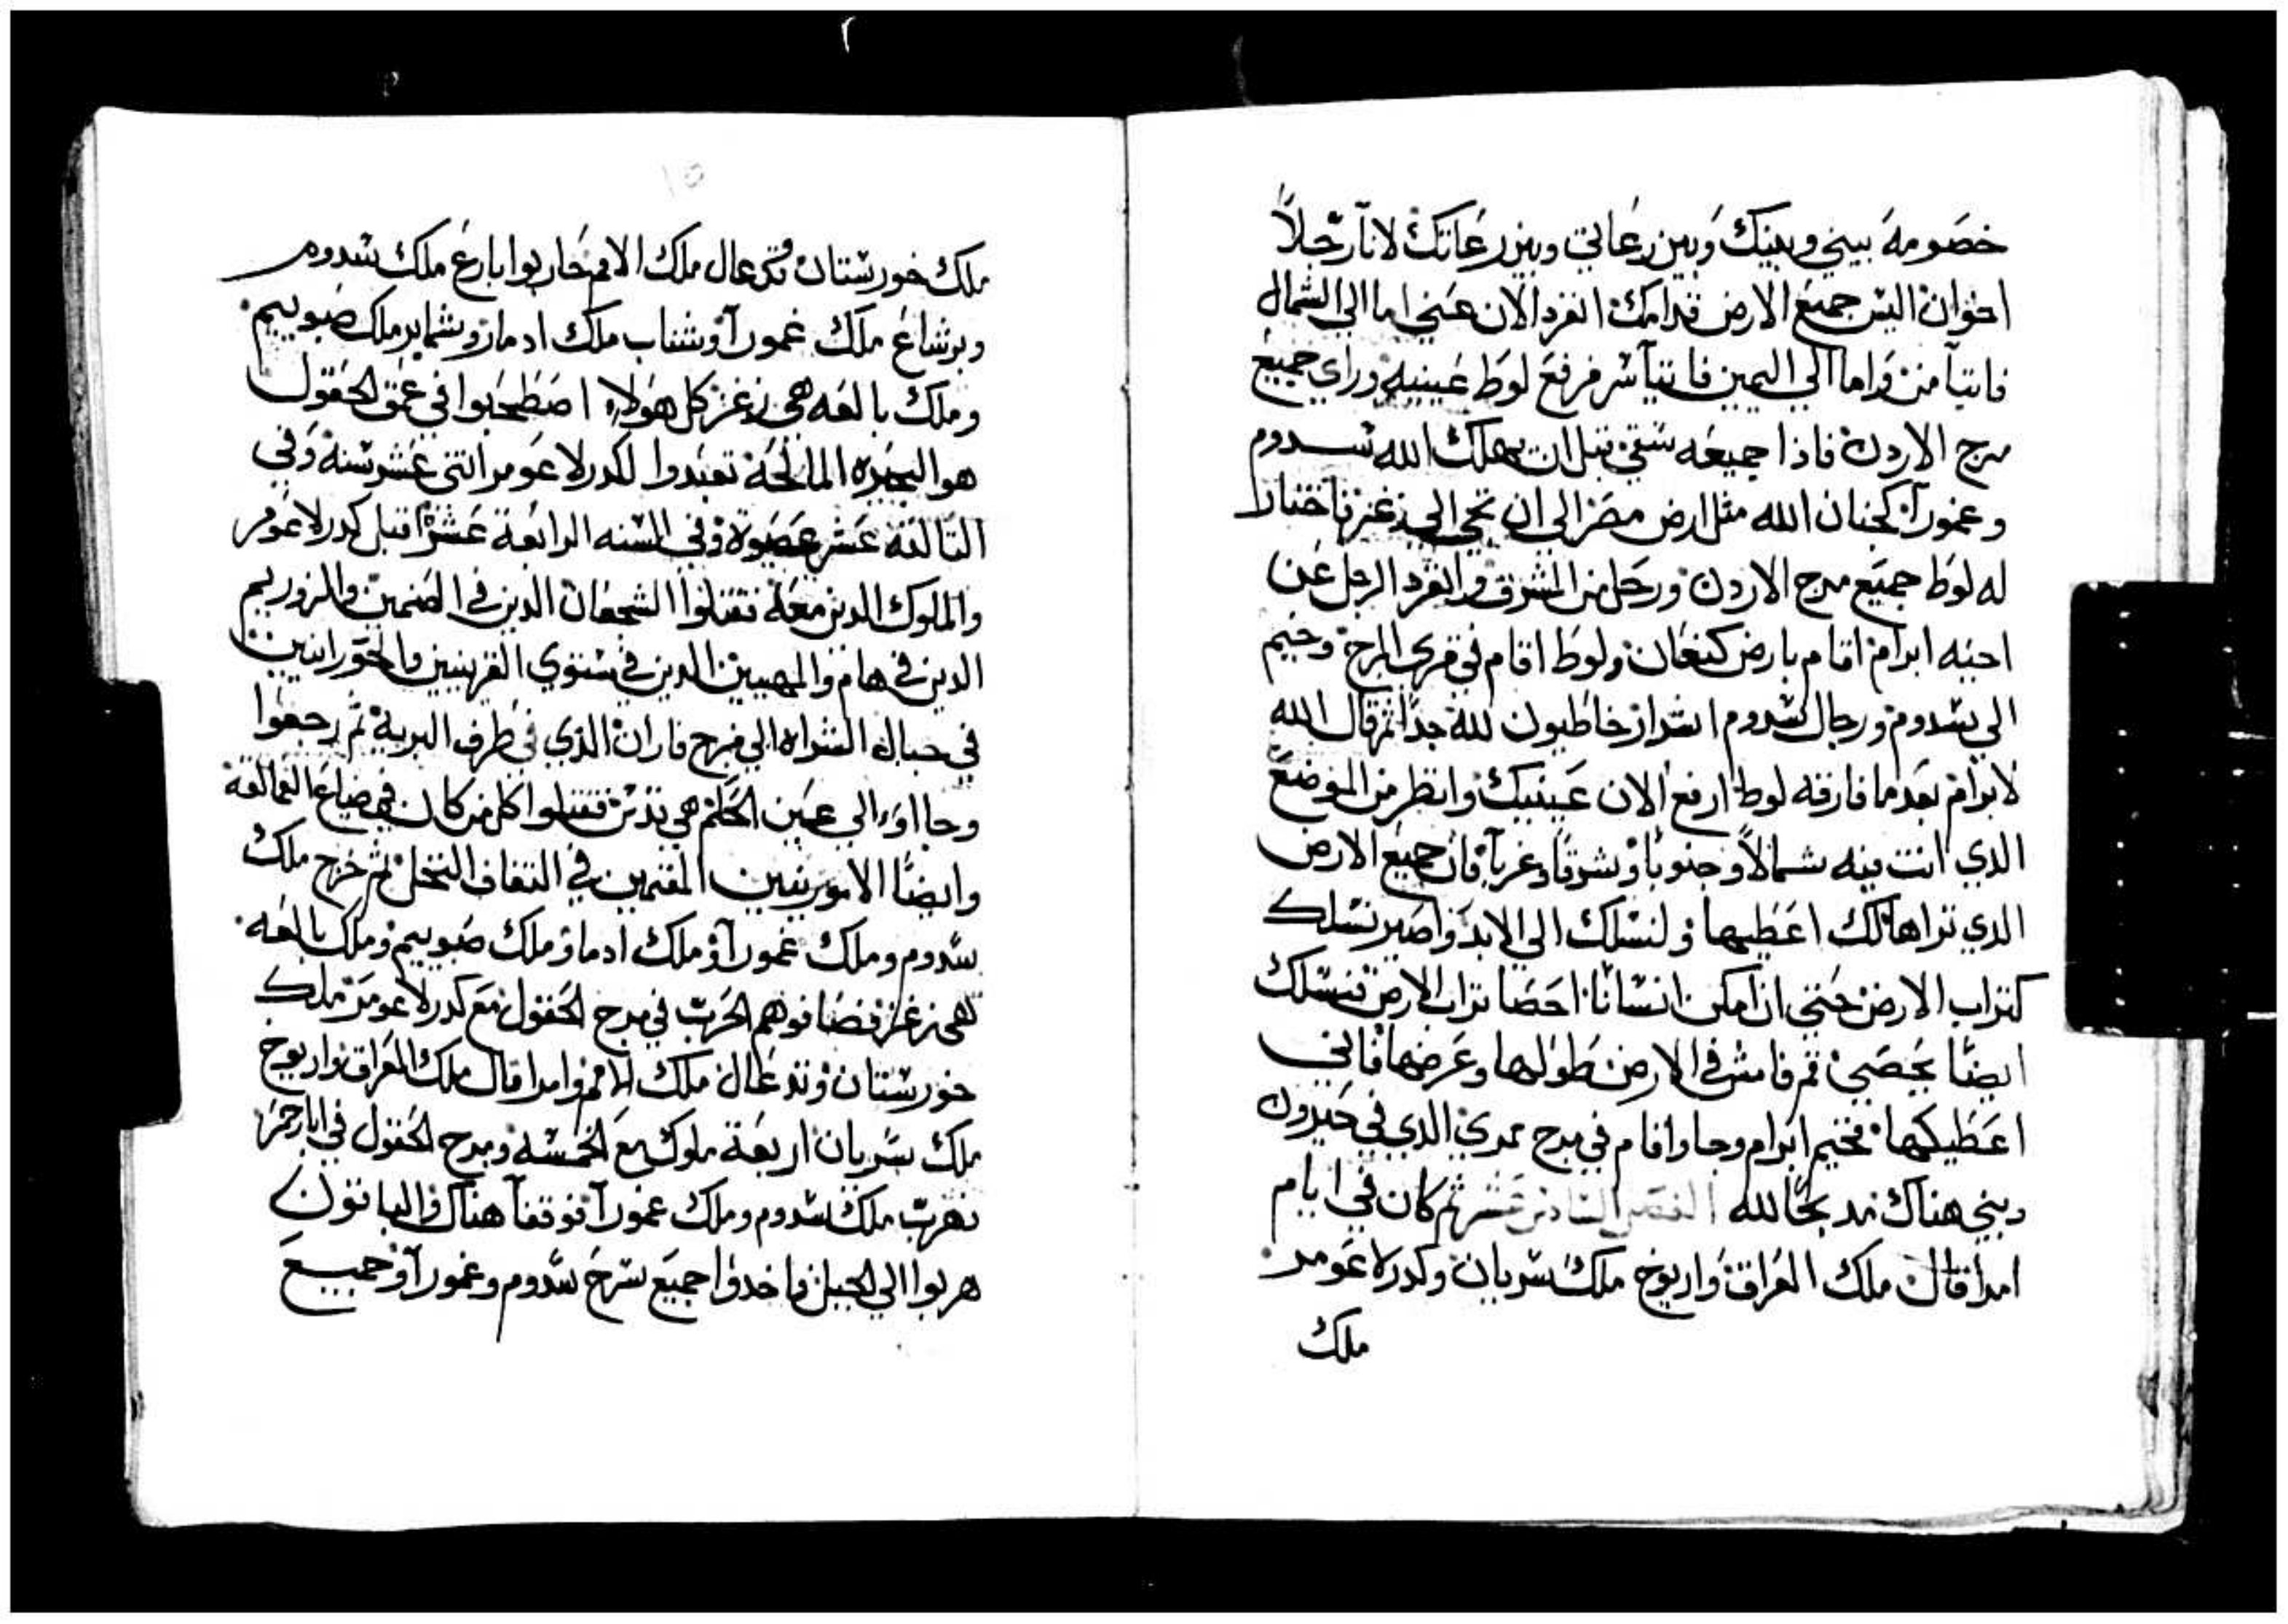 خصومة بيني وبينك وبين رعاتي وبين رعاتك لانا رجلاً
اخوان اليس جميع الارض قدامك انفرد الان عني اما الي الشمال
فاتيا من واما الي اليمين فاتيا سر فرفع لوط عينيه وراي جميع
مرج الاردن فاذا جميعه سقي قبل ان يهلك الله سدوم
وعمورا كجنان الله مثل ارض مصر الي ان تجي الي زغر فاختار
له لوط جميع مرج الاردن ورحل من المشرق وانفرد الرجل عن
اخيه ابرام اقام بارض كنعان ولوط اقام في قري المرج وخيم
الي سدوم ورجال سدوم اشرار خاطيون لله جدا ثم قال الله
لابرام بعد ما فارقه لوط ارفع الان عينيك وانظر من الموضع
الذي انت فيه شمالاً وجنوباً وشرقا وغرباً فان جميع الارض
الذي تراها لك اعطيها ولنسلك الي الابد واصير نسلك
كتراب الارض حتي ان امكن انسانا احصا تراب الارض فنسلك
ايضا يحصي قم فامش في الارض طولها وعرضها فاني
اعطيكها فخيم ابرام وجا واقام في مرج ممري الذي في حبرون
وبني هناك مدبحا لله الفصل السادس عشر ثم كان في ايام
امرافال ملك العراق واريوخ ملك سريان وكدرلاعومر
ملك
١٥
ملك خورستان وتدعال ملك الامم حاربوا بارع ملك سدوم
وبرشاع ملك عمورا وشناب ملك ادما وشماير ملك صبوييم
وملك بالعه هي زغر كل هولاء اصطحبوا في عمق الحقول
هو البحيره المالحة تعبدوا لكدرلاعومر اثني عشر سنة وفي
الثالثة عشر عصوة وفي السنه الرابعة عشر اقبل كدرلاعومر
والملوك الدين معه فقتلوا الشجعان الدين في الصنمين والزوريم
الدين في هام والمهيبين الدين في مستوي القريتين والحورانيين
في جبال الشراه الي مرج فاران الذي في طرف البرية ثم رجعوا
وجااوا الي عين الحكم هي قدس فقتلوا كل من كان في ضياع العمالقة
وايضا الاموريين المقيمين في التفاف النخل ثم خرج ملك
سدوم وملك عمورا وملك ادما وملك صبوييم وملك بالعه
هي زغر فصافوهم الحرب في مرج الحقول مع كدرلاعومر ملك
خورستان وتدعال ملك الامم وامرافال ملك العراق واريوخ
ملك سريان اربعة ملوك مع الخمسه ومرج الحقول في ابار حمر
فهرب ملك سدوم وملك عمورا فوقعا هناك والباقون
هربوا الي الجبل فاخدوا جميع سرح سدوم وعمورا وجميع